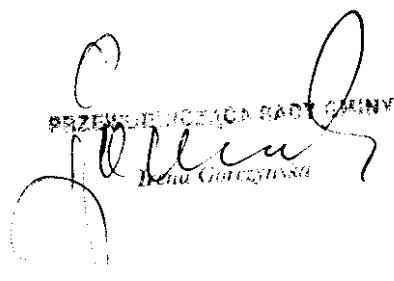 PRZEWODNICZĄCA RADY GMINY
Irena Gorczyńska